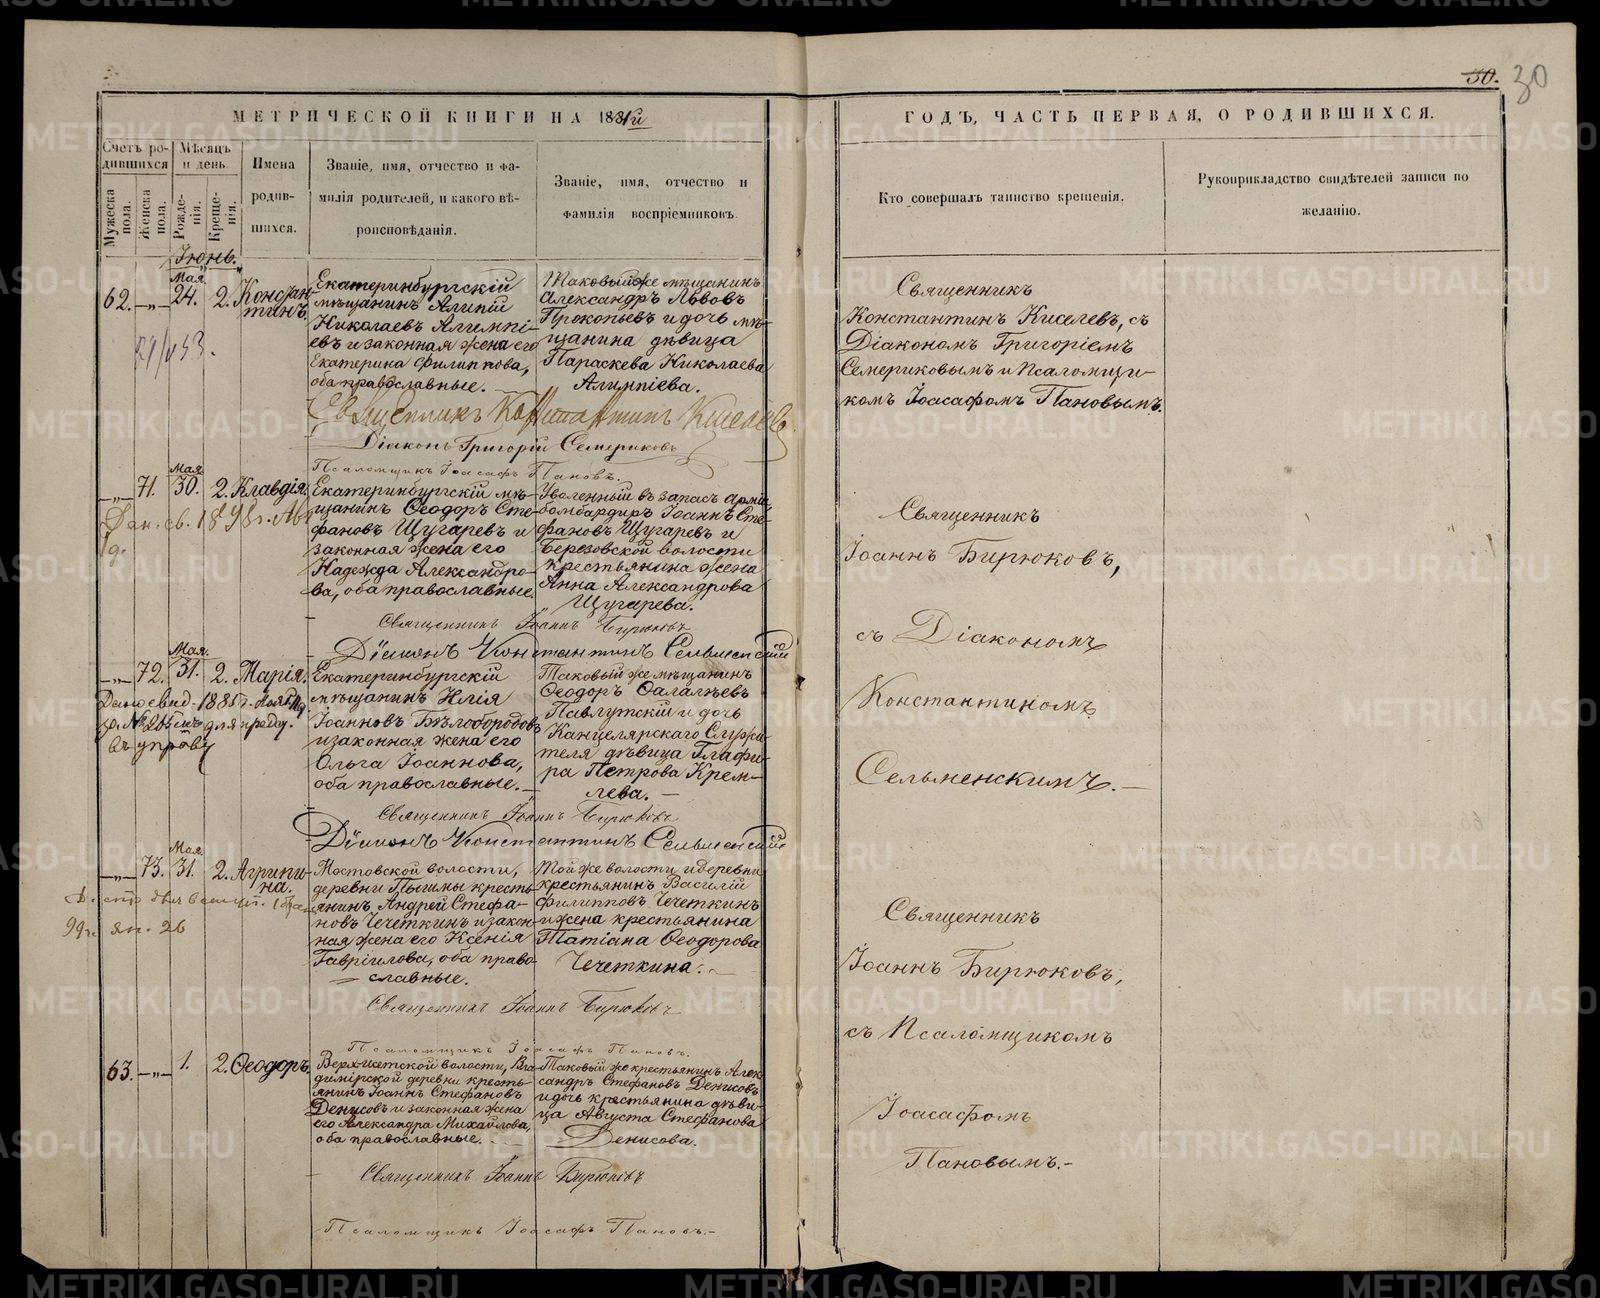 30. 30
МЕТРИЧЕСКОЙ КНИГИ НА 1881й
ГОДЪ, ЧАСТЬ ПЕРВАЯ, О РОДИВШИХСЯ.
Счетъ ро-
дившихся
Мѣсяцъ
и день.
Мужеска
пола.
Женска
пола.
Рожде-
нія.
Креще-
нія.
Имена
родив-
шихся.
Званіе, имя, отчество и фа-
милія родителей, и какого вѣ-
роисповѣданія.
Званіе, имя, отчество и
фамилія воспріемниковъ.
Кто совершалъ таинство крещенія.
Рукоприкладство свидѣтелей записи по
желанію.
Іюнь.
62. —„— Мая 24. 2. Констан-
тинъ.
Екатеринбургскій
мѣщанинъ Алипій
Николаевъ Алимпі-
евъ и законная жена его
Екатерина Филиппова,
оба православные.
Таковый же мѣщанинъ
Александръ Львовъ
Прокопьевъ и дочь мѣ-
щанина дѣвица
Параскева Николаева
Алимпіева.
Священникъ
Константинъ Киселевъ, съ
Діакономъ Григоріемъ
Семериковымъ и Псаломщи-
комъ Іоасафомъ Пановымъ.
Священникъ Константинъ Киселевъ
Діаконъ Григорій Семериковъ
Псаломщикъ Іоасафъ Пановъ.
—„— 71. Мая 30. 2. Клавдія.
Екатеринбургскій мѣ-
щанинъ Ѳеодоръ Сте-
фановъ Щугаревъ и
законная жена его
Надежда Александро-
ва, оба православные.
Уволенный въ запасъ арміи
бомбардиръ Іоаннъ Сте-
фановъ Щугаревъ и
Березовской волости
крестьянина жена
Анна Александрова
Щугарева.
Священникъ
Іоаннъ Бирюковъ,
съ Діакономъ
Константиномъ
Сельменскимъ.—
Священникъ Іоаннъ Бирюковъ
Діаконъ Константинъ Сельменскій
—„— 72. Мая. 31. 2. Марія.
Екатеринбургскій
мѣщанинъ Илія
Іоанновъ Бѣлобородовъ
и законная жена его
Ольга Іоаннова,
оба православные.—
Таковый же мѣщанинъ
Ѳеодоръ Ѳалалѣевъ
Павлутскій и дочь
Канцелярскаго Служи-
теля дѣвица Глафи-
ра Петрова Крем-
лева.—
въ управу
Священникъ Іоаннъ Бирюковъ
Діаконъ Константинъ Сельменскій
—„— 73. Мая 31. 2. Агриппи-
на.
Мостовской волости,
деревни Пышмы кресть-
янинъ Андрей Стефа-
новъ Чечеткинъ и закон-
ная жена его Ксенія
Гавріилова, оба право-
славные.
Той же волости и деревни
крестьянинъ Василій
Филипповъ Чечеткинъ
и жена крестьянина
Татіана Ѳеодорова
Чечеткина.
Священникъ
Іоаннъ Бирюковъ,
съ Псаломщикомъ
Іоасафомъ
Пановымъ.—
Священникъ Іоаннъ Бирюковъ
Псаломщикъ Іоасафъ Пановъ.
63. —„— 1. 2. Ѳеодоръ.
Верхъ-Исетской волости, Вла-
димірской деревни кресть-
янинъ Іоаннъ Стефановъ
Денисовъ и законная жена
его Александра Михайлова,
оба православные.
Таковый же крестьянинъ Алек-
сандръ Стефановъ Денисовъ
и дочь крестьянина дѣви-
ца Августа Стефанова
Денисова.
Священникъ Іоаннъ Бирюковъ
Псаломщикъ Іоасафъ Пановъ.—